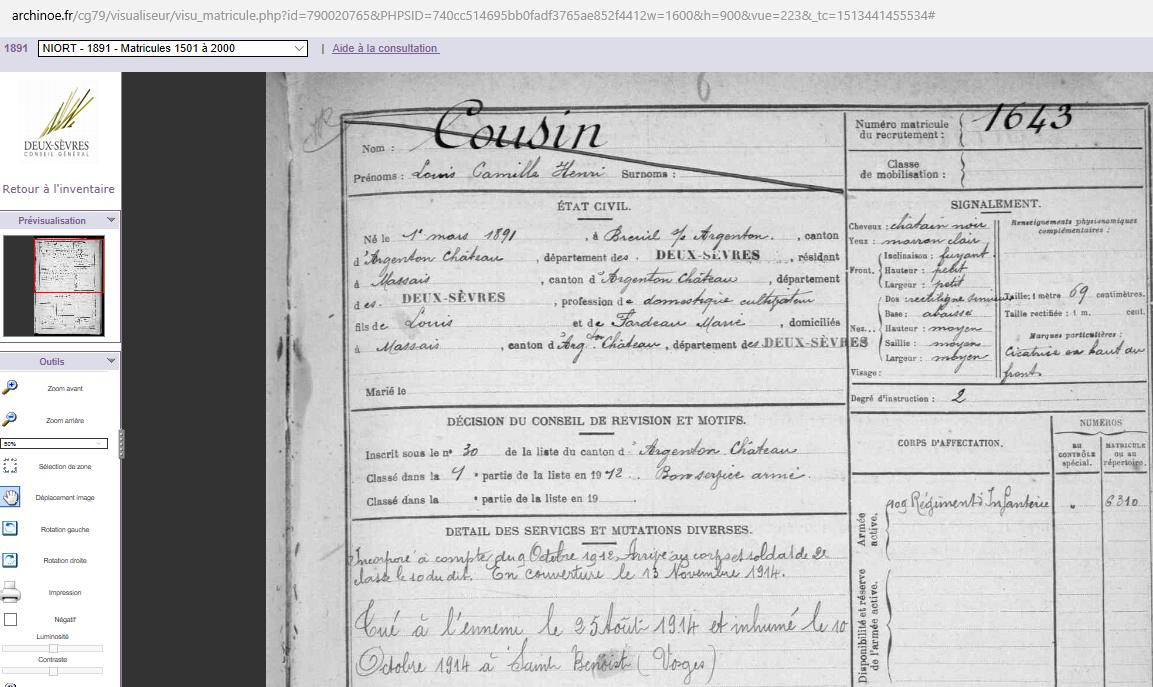 archinoe.fr/cg79/visualiseur/visu_matricule.php?id=790020765&PHPSID=740cc514695bb0fadf3765ae852f4412w=1600&h=900&vue=223&_tc=1513441455534#
1891 NIORT - 1891 - Matricules 1501 à 2000 | Aide à la consultation
DEUX-SÈVRES
CONSEIL GÉNÉRAL
Retour à l'inventaire
Prévisualisation
Outils
Zoom avant
Zoom arrière
50%
Sélection de zone
Déplacement image
Rotation gauche
Rotation droite
Impression
Négatif
Luminosité
Contraste
6
Nom : Cousin
Prénoms : Louis Camille Henri Surnoms :
Numéro matricule du recrutement : 1643
Classe de mobilisation :
ÉTAT CIVIL.
Né le 1er mars 1891, à Breuil s/s Argenton, canton
d'Argenton Château, département des DEUX-SÈVRES, résidant
à Massais, canton d'Argenton Château, département
des DEUX-SÈVRES, profession de domestique cultivateur
fils de Louis et de Fardeau Marie, domiciliés
à Massais, canton d'Argton Château, département des DEUX-SÈVRES
Marié le
SIGNALEMENT.
Cheveux : chatain noir
Yeux : marron clair
Front. Inclinaison : fuyant
Hauteur : petit
Largeur : petit
Nez... Dos : rectiligne sinueux
Base : abaissé
Hauteur : moyen
Saillie : moyen
Largeur : moyen
Visage :
Renseignements physionomiques complémentaires :
Taille : 1 mètre 69 centimètres.
Taille rectifiée : 1 m. cent.
Marques particulières :
Cicatrice en haut du
front
Degré d'instruction : 2
DÉCISION DU CONSEIL DE REVISION ET MOTIFS.
Inscrit sous le n° 30 de la liste du canton d'Argenton Château
Classé dans la 1e partie de la liste en 1912. Bon service armé.
Classé dans la e partie de la liste en 19
CORPS D'AFFECTATION.
NUMÉROS
AU CONTRÔLE spécial.
MATRICULE ou au répertoire.
Armée active.
109 Régiment d'Infanterie " 6310
Disponibilité et réserve de l'armée active.
DETAIL DES SERVICES ET MUTATIONS DIVERSES.
Incorporé à compter du 9 Octobre 1912, Arrivé au corps et soldat de 2e
classe le 10 du dit. En couverture le 13 Novembre 1914.
Tué à l'ennemi le 25 Août 1914 et inhumé le 10
Octobre 1914 à Saint Benoist (Vosges)